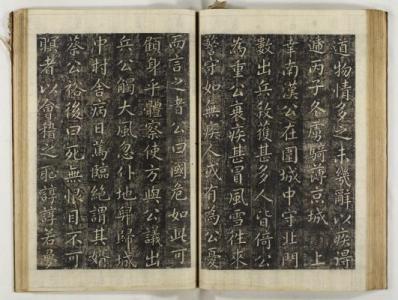 道物情多之未幾辭以疾得
遞丙子冬虜騎薄京城　上
幸南漢公在圍城中守北門
數出兵殺獲甚多人皆倚公
為重公衰疾甚冒風雪往來
警守如無疾人或有為公憂
而言之者公曰國危如此可
顧身乎體察使方與公議出
兵公觸大風忽仆地舁歸城
中村舍病日篤臨絶謂其婿
蔡公裕後曰死無恨目不可
瞑者以會稽之恥諄諄若